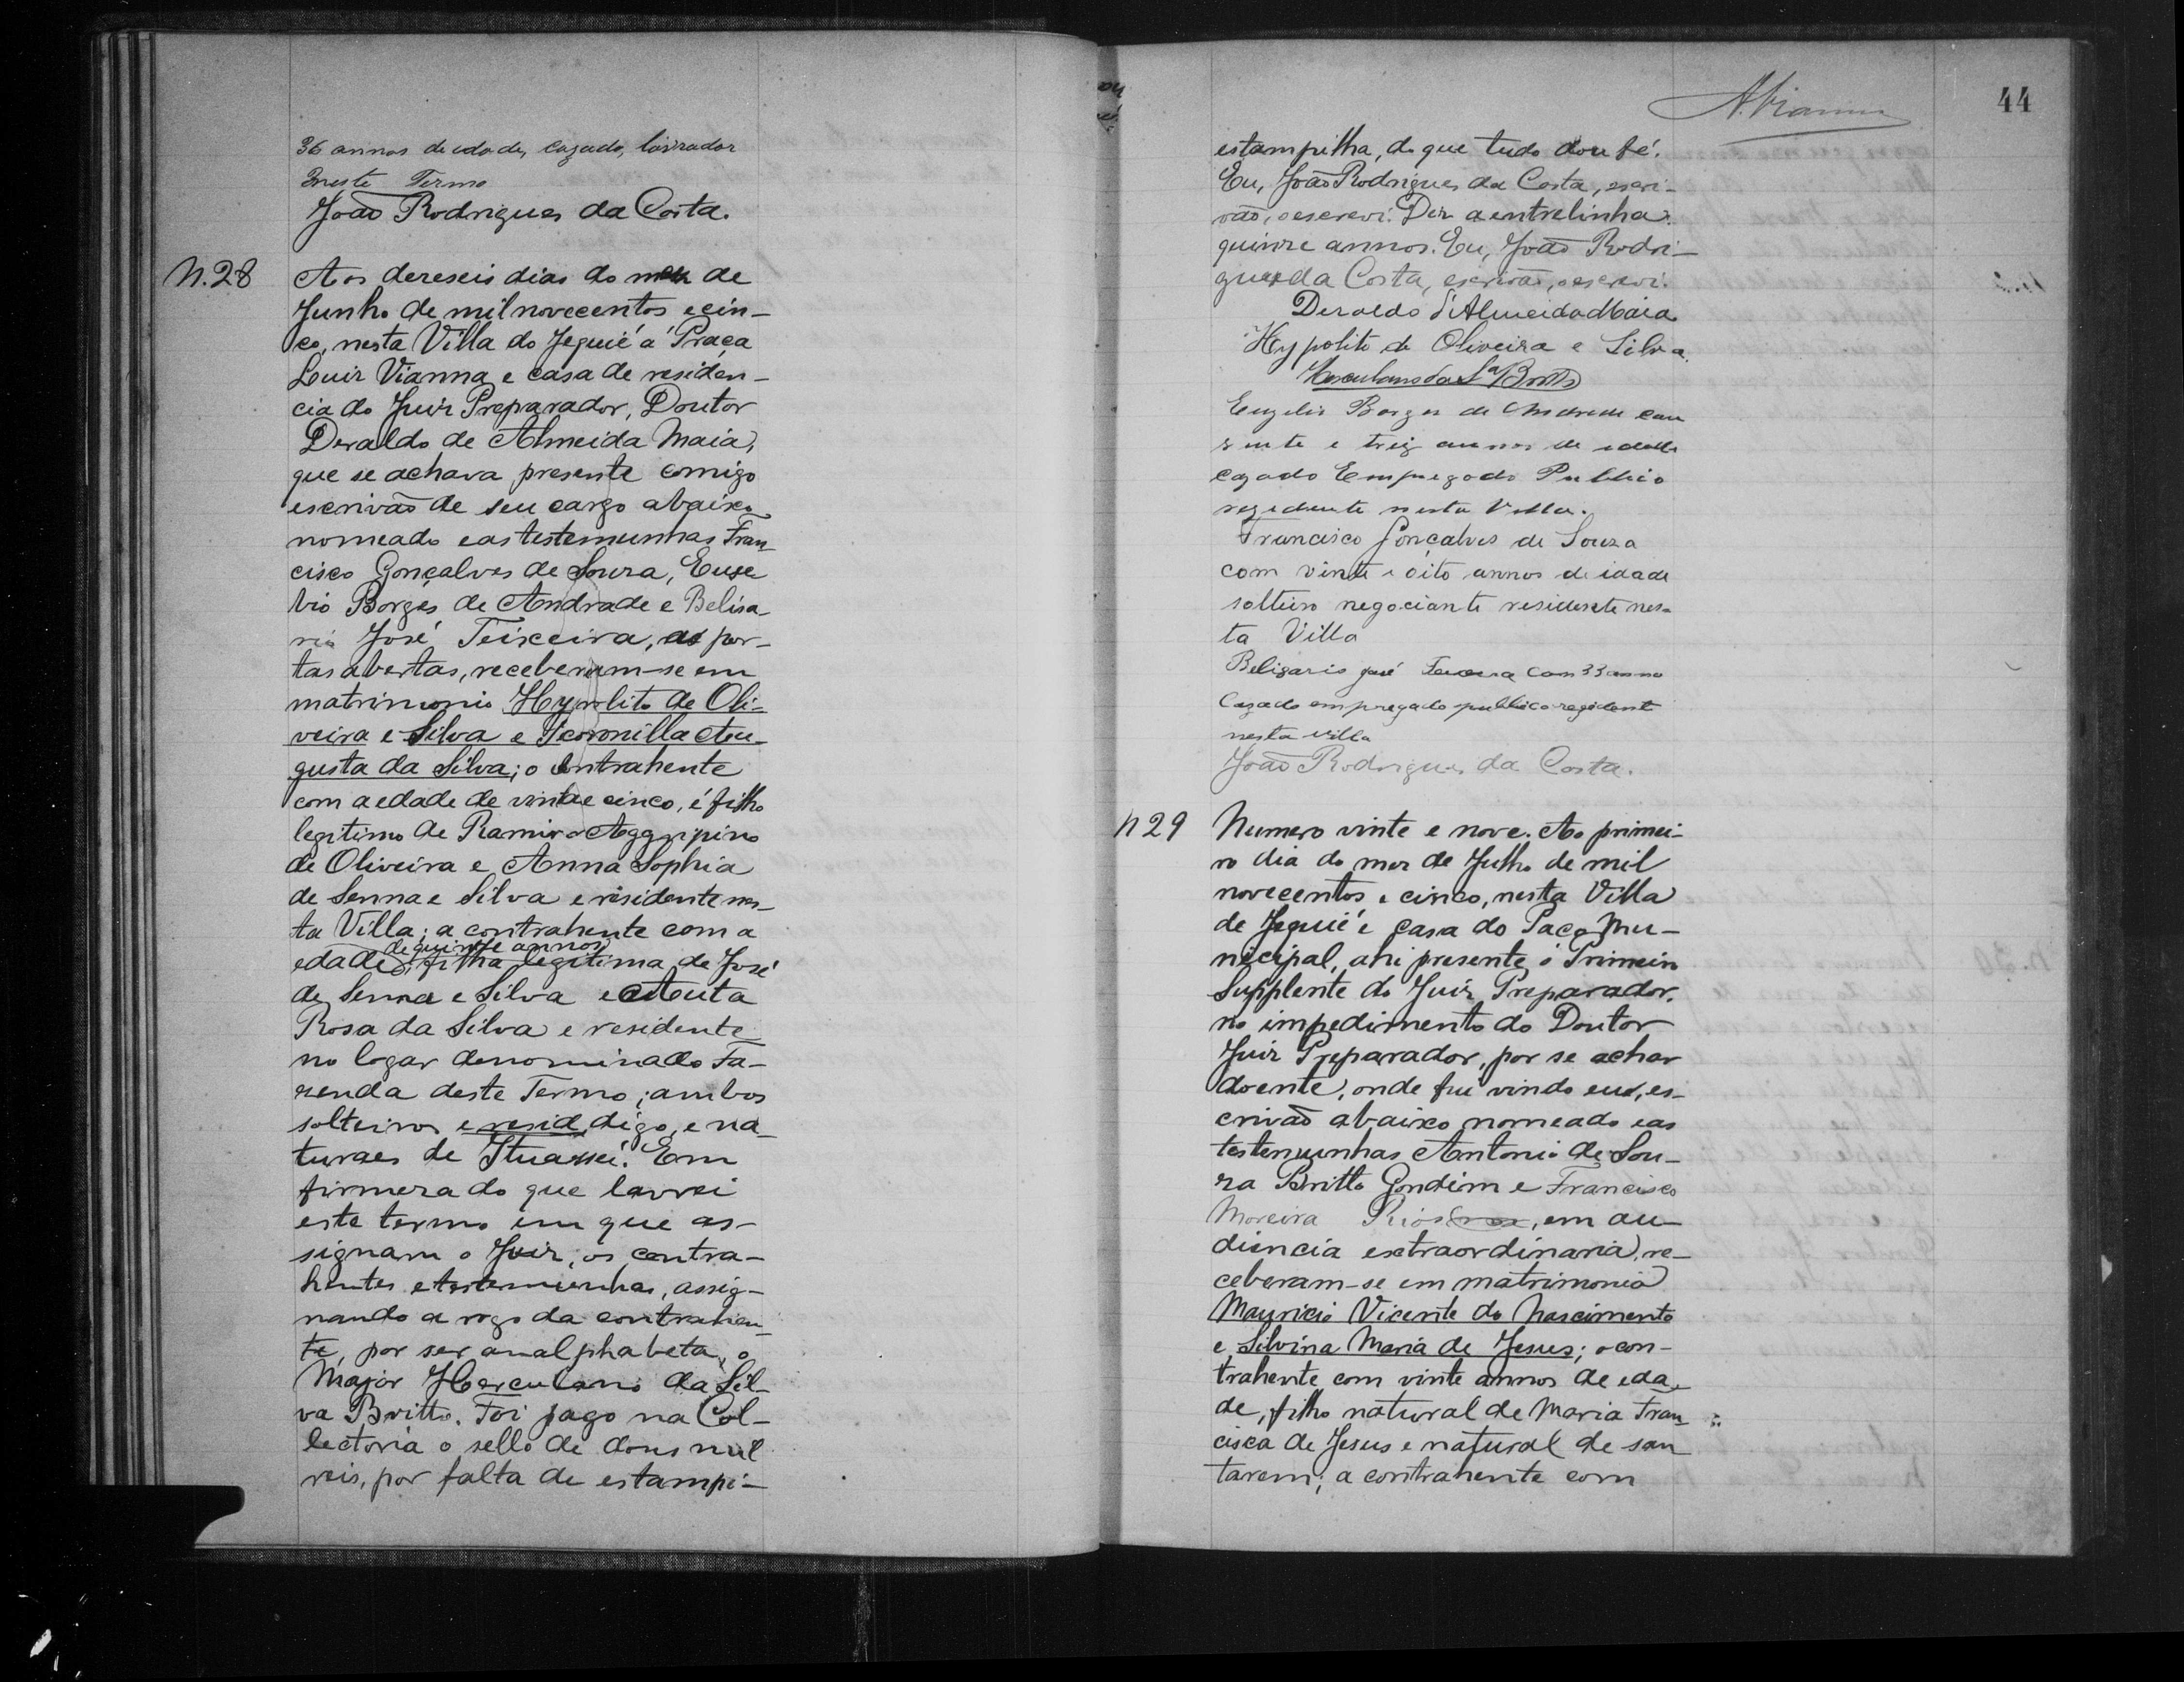 36 annos de edade, cazado, lavrador
neste Termo
João Rodrigues da Costa.
N. 28
Aos dereseis dias do mez de
Junho de mil novecentos e cin-
co, nesta Villa do Jequié á Praça
Luiz Vianna e casa de residen-
cia do Juiz Preparador, Doutor
Deraldo de Almeida Maia,
que se achava presente comigo
escrivão de seu cargo abaixo
nomeado e as testemunhas Fran
cisco Gonçalves de Souza, Euze
bio Borges de Andrade e Belisa-
rio José Teixeira, as por-
tas abertas, receberam-se em
matrimonio Hypolito de Oli-
veira e Silva e Au-
gusta da Silva; o contrahente
com a edade de vinte e cinco, é filho
legitimo de Ramiro Aggripino
de Oliveira e Anna Sophia
de Senna e Silva e residente nes-
ta Villa; a contrahente com a
de quinze annos
edade, filha legitima de José
de Senna e Silva e Auta
Rosa da Silva e residente
no logar denominado Fa-
zenda deste Termo; ambos
solteiros e resid, digo, e na-
turaes de Ituassú. Em
firmeza do que lavrei
este termo em que as-
signam o Juiz, os contra-
hentes e testemunhas, assig-
nando a rogo da contrahen-
te, por ser analphabeta, o
Major Herculano da Sil-
va Britto. Foi pago na Col-
lectoria o sello de dous mil
reis, por falta de estampi-
44
A. Vianna
estampilha, do que tudo dou fé.
Eu, João Rodrigues da Costa, escri-
vão, o escrevi. Diz a entrelinha:
quinze annos. Eu, João Rodri-
gues da Costa, escrivão, o escrevi.
Deraldo d'Almeida Maia
Hypolito de Oliveira e Silva.
Herculano da Sa Britto
Euzebio Borges de Andrade com
vinte e treiz annos de edade
cazado Empregado Publico
rezidente nesta Villa.
Francisco Gonçalves de Souza
com vinte e oito annos de idade
solteiro negociante residente nes-
ta Villa
Belizario José Teixeira com 33 anno
Cazado empregado publico rezidente
nesta villa
João Rodrigues da Costa.
N 29
Numero vinte e nove. Ao primei-
ro dia do mez de Julho de mil
novecentos e cinco, nesta Villa
de Jequié e casa do Paço Mu-
nicipal, ahi presente o Primeiro
Supplente do Juiz Preparador,
no impedimento do Doutor
Juiz Preparador, por se achar
doente, onde fui vindo eu, es-
crivão abaixo nomeado e as
testemunhas Antonio de Sou-
za Britto Gondim e Francisco
Moreira Rios, em au-
diencia extraordinaria, re-
ceberam-se em matrimonio
Mauricio Vicente do Nascimento
e Silvina Maria de Jesus; o con-
trahente com vinte annos de eda-
de, filho natural de Maria Fran-
cisca de Jesus e natural de San
tarem; a contrahente com